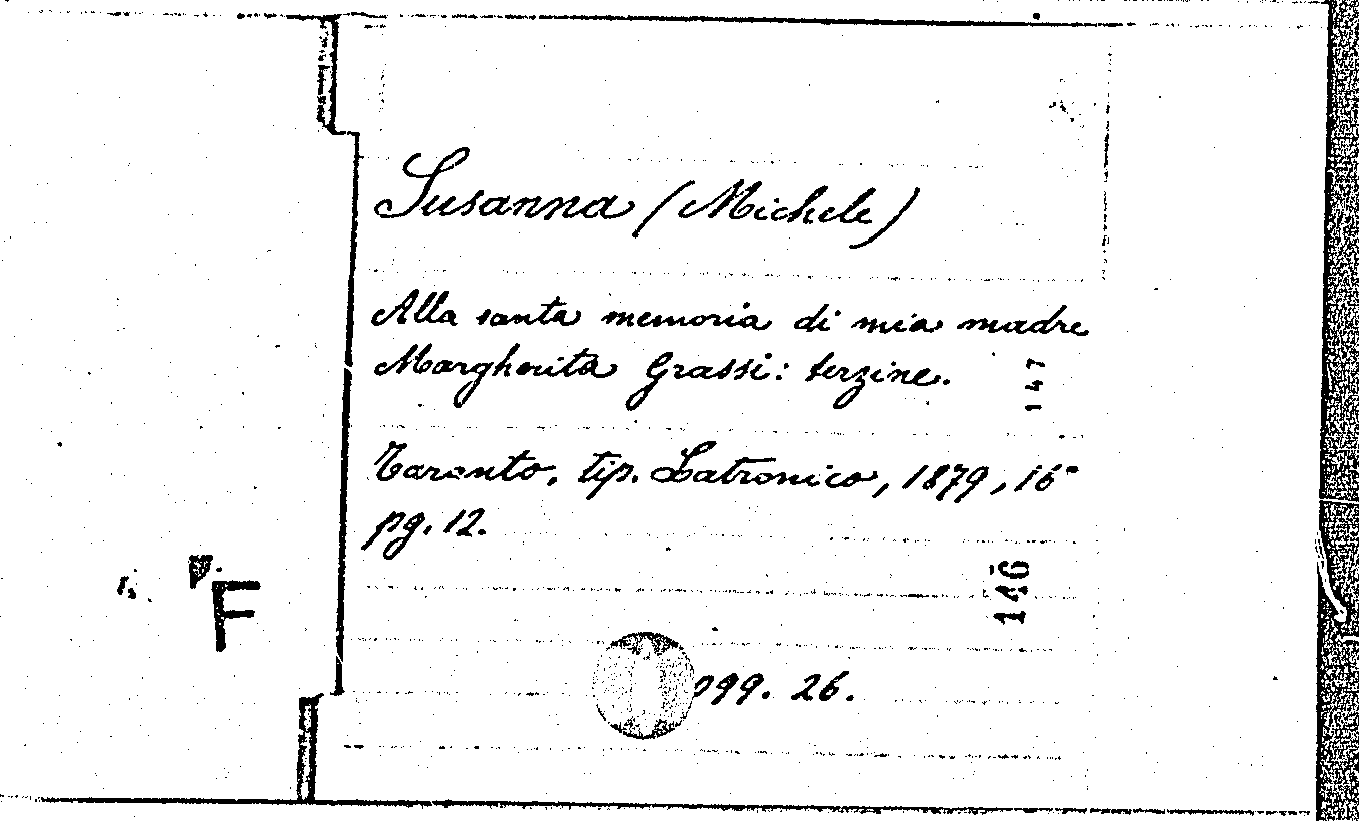 Susanna (Michele)
Alla santa memoria di mia madre
Margherita Grassi: terzine.
147
Taranto, tip. Latronico, 1879, 16°
pg. 12.
146
F
099. 26.